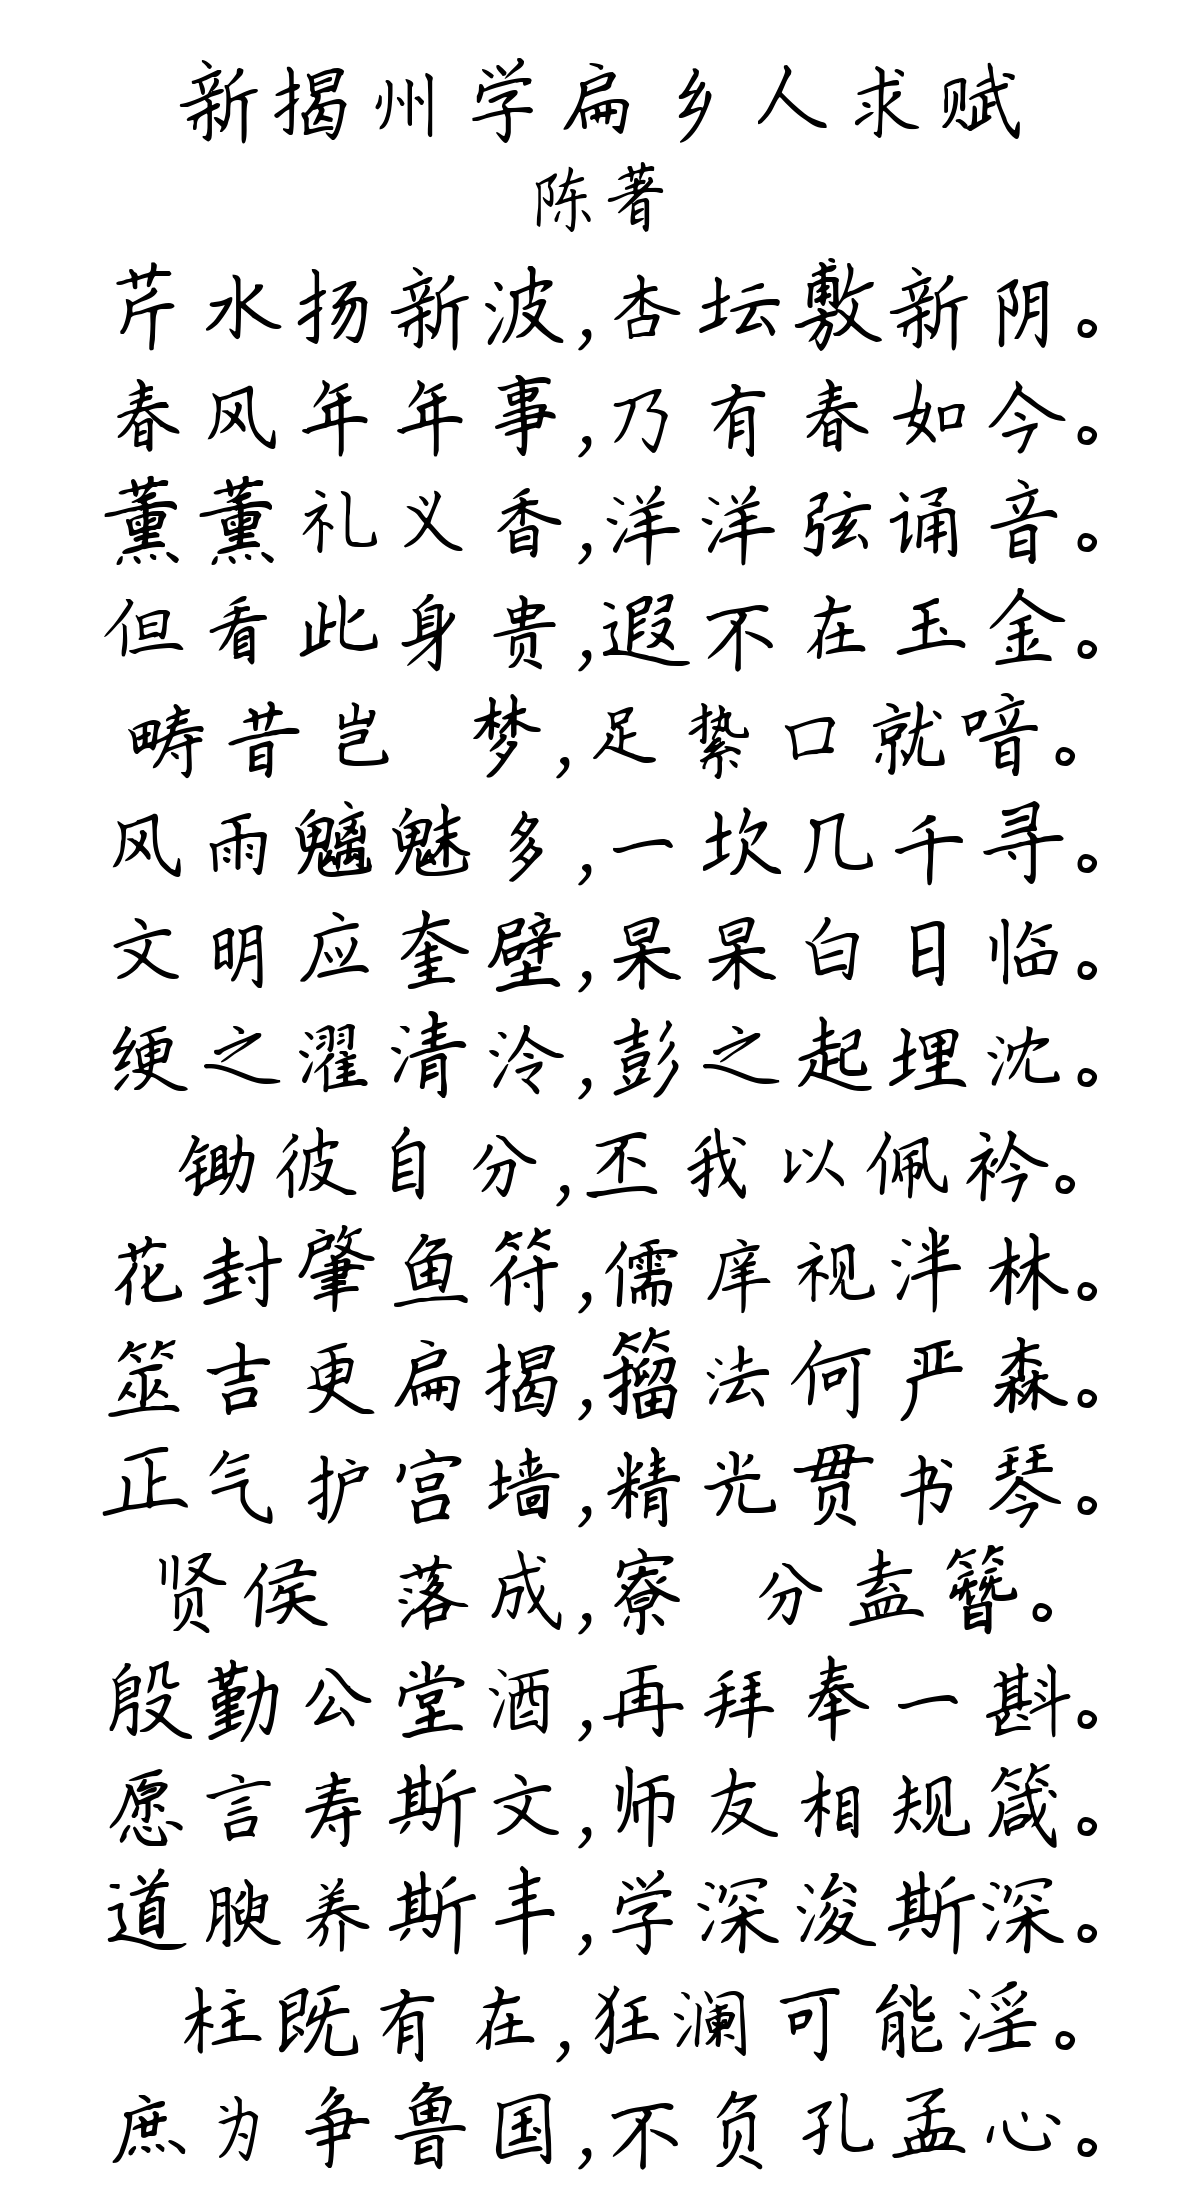 新揭州学扁乡人求赋
陈著
芹水扬新波,杏坛敷新阴。
春风年年事,乃有春如今。
薰薰礼义香,洋洋弦诵音。
但看此身贵,遐不在玉金。
畴昔岂 梦,足絷口就喑。
风雨魑魅多,一坎几千寻。
文明应奎壁,杲杲白日临。
绠之濯清泠,彭之起埋沈。
锄彼自分,丕我以佩衿。
花封肇鱼符,儒庠视泮林。
筮吉更扁揭,籀法何严森。
正气护宫墙,精光贯书琴。
贤侯 落成,寮 分盍簪。
殷勤公堂酒,再拜奉一斟。
愿言寿斯文,师友相规箴。
道腴养斯丰,学深浚斯深。
柱既有在,狂澜可能淫。
庶为争鲁国,不负孔孟心。